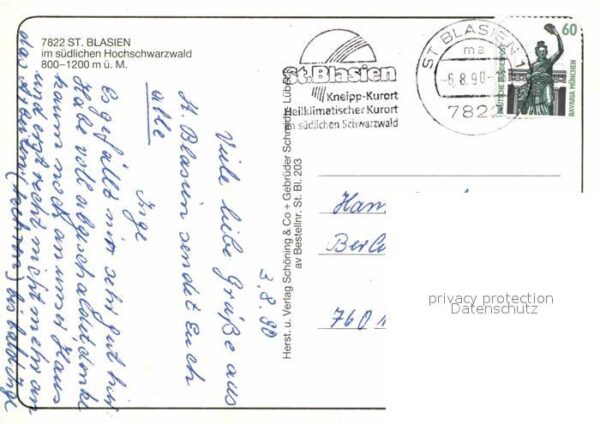 7822 ST. BLASIEN
im südlichen Hochschwarzwald
800–1200 m ü. M.
3.8.90
Viele liebe Grüße aus
St. Blasien sendet Euch
alle
Inge
Es gefällt mir sehr gut hier
Habe voll abgeschaltet denke
kaum noch an unser Haus
und erst recht nicht mehr an
das Arbeiten
bis baldige
Herst. u. Verlag Schöning & Co + Gebrüder Schmidt Lübeck
av Bestellnr. St. Bl. 203
St.Blasien
Kneipp-Kurort
Heilklimatischer Kurort
im südlichen Schwarzwald
ST. BLASIEN 1
ma
-6.8.90-
7822
60
DEUTSCHE BUNDESPOST
BAVARIA MÜNCHEN
Han
Berl
760
privacy protection
Datenschutz